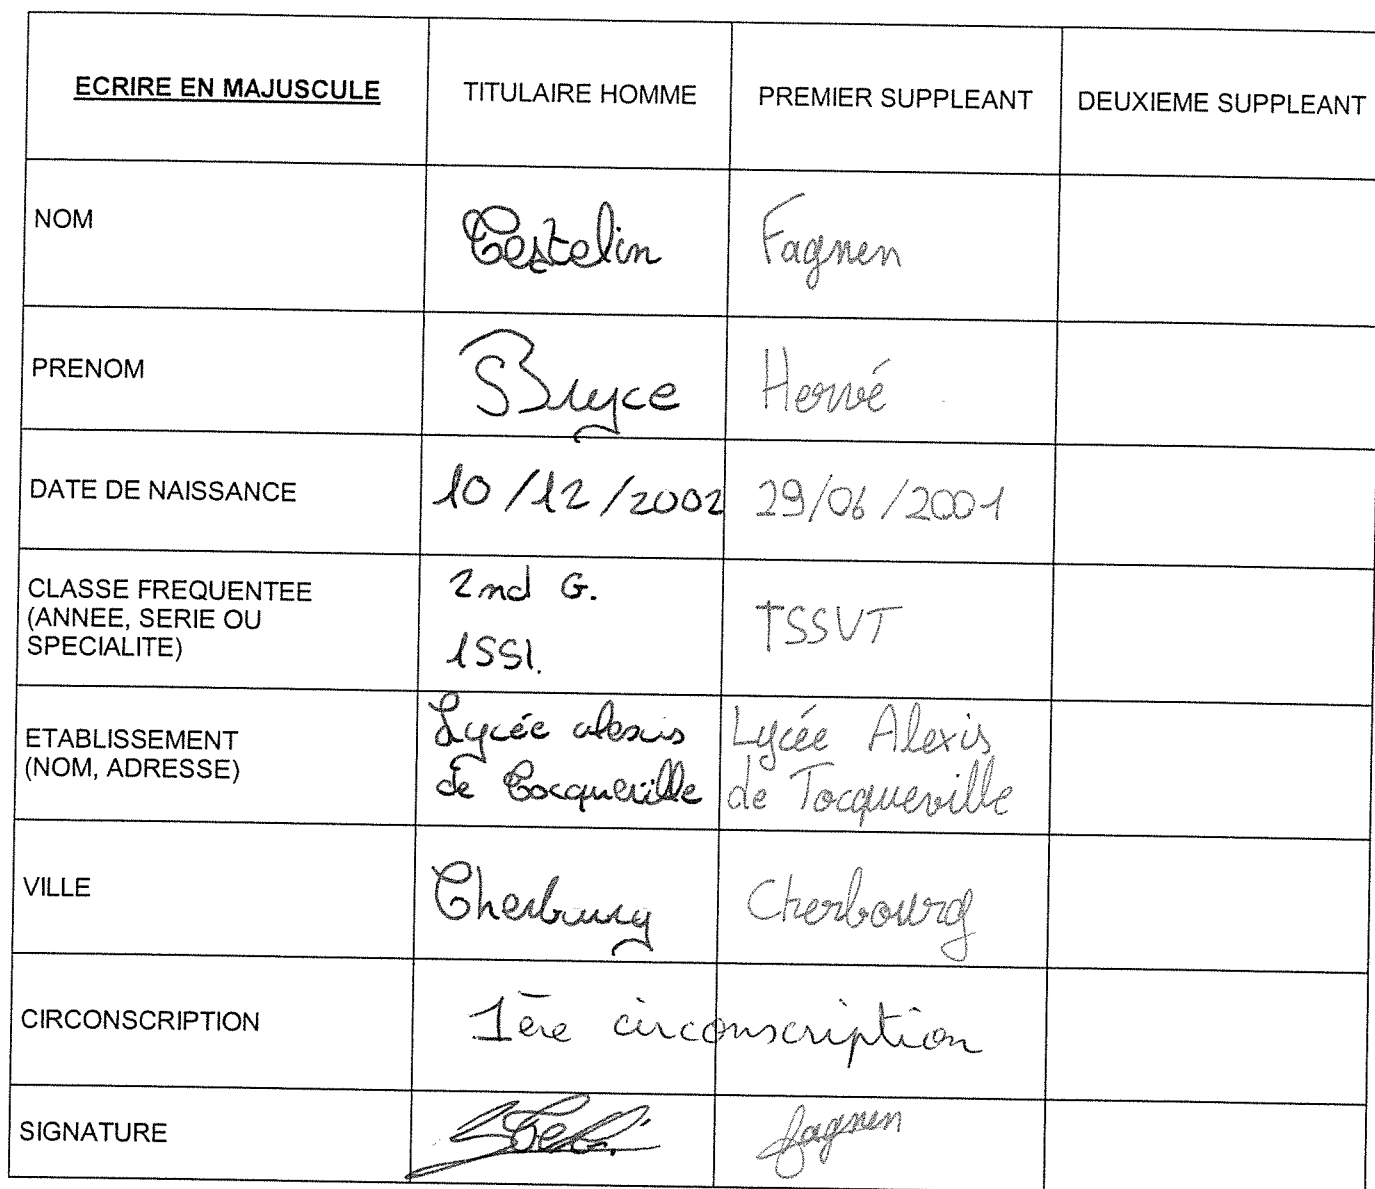 ECRIRE EN MAJUSCULE TITULAIRE HOMME PREMIER SUPPLEANT DEUXIEME SUPPLEANT
NOM Testelin Fagnen
PRENOM Bryce Hervé
DATE DE NAISSANCE 10/12/2002 29/06/2001
CLASSE FREQUENTEE
(ANNEE, SERIE OU
SPECIALITE)
2nd G.
1SSI.
TSSVT
ETABLISSEMENT
(NOM, ADRESSE)
Lycée alexis
de Tocqueville
Lycée Alexis
de Tocqueville
VILLE Cherbourg Cherbourg
CIRCONSCRIPTION 1ère circonscription
SIGNATURE fagnen